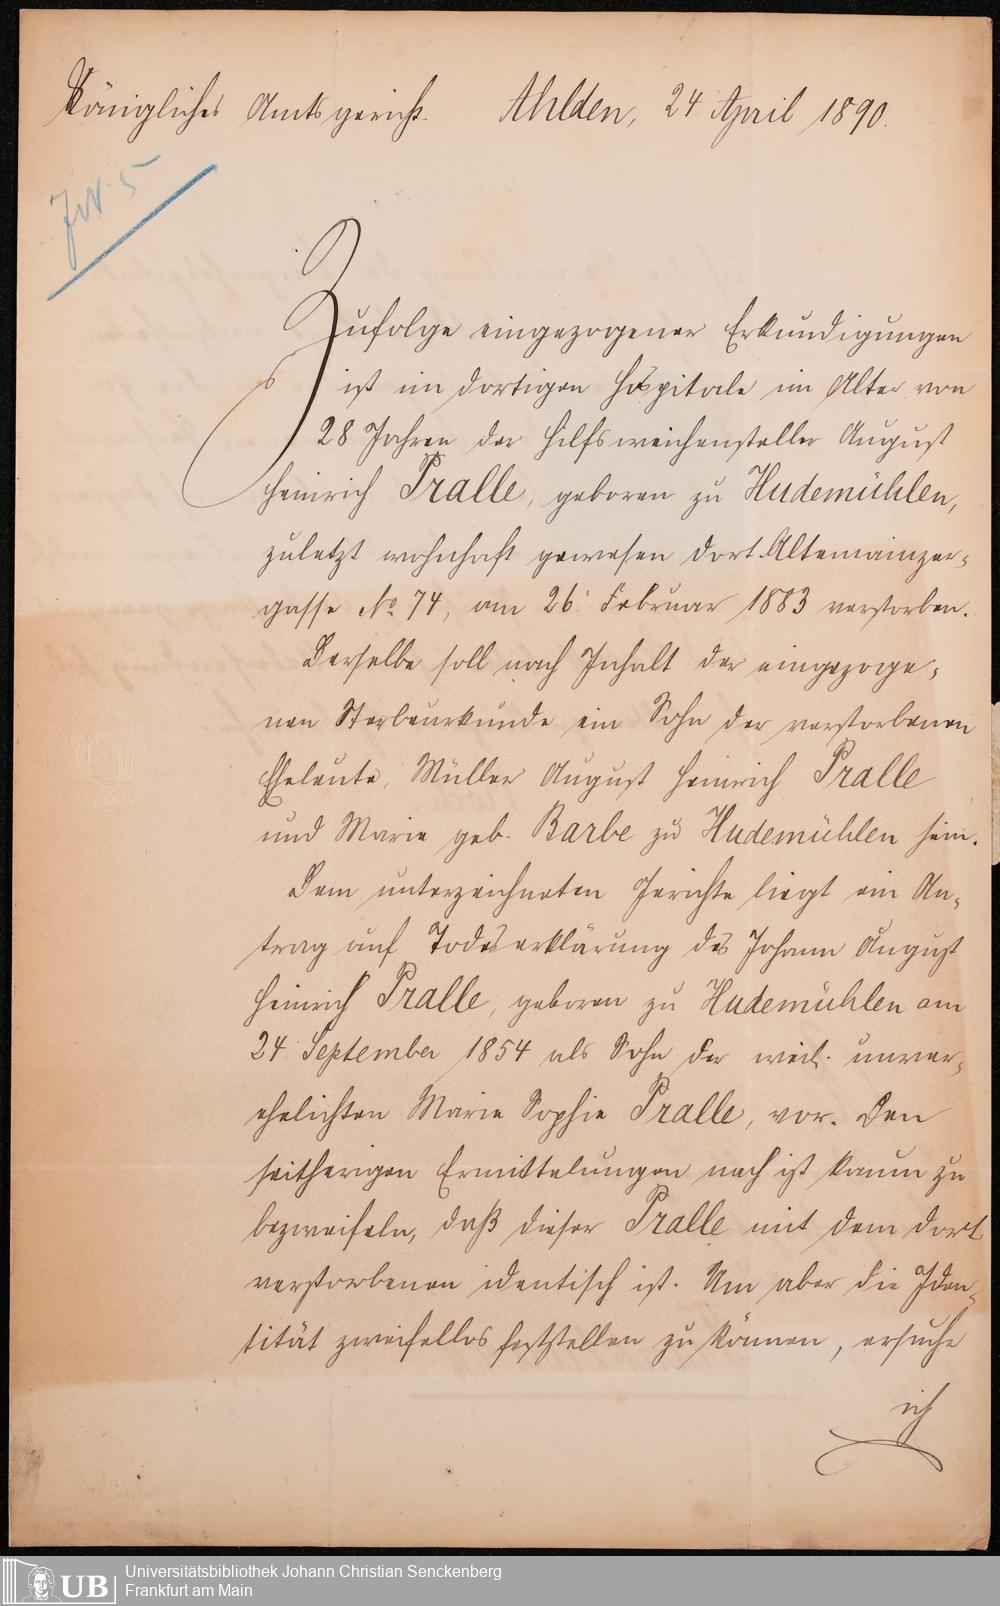 Königliches Amtsgericht. Ahlden, 24 April 1890.
JN. 5
Zufolge eingezogener Erkundigungen
ist im dortigen Hospitale im Alter von
28 Jahren der Hilfsweichensteller August
Heinrich Pralle, geboren zu Hudemühlen,
zuletzt wohnhaft gewesen dort. Altemainzer-
gasse No. 74, am 26. Februar 1883 verstorben.
Derselbe soll nach Inhalt der eingezoge-
nen Sterbeurkunde ein Sohn der verstorbenen
Eheleute, Müller August Heinrich Pralle
und Marie geb. Barbe zu Hudemühlen sein.
Dem unterzeichneten Gerichte liegt ein An-
trag auf Todeserklärung des Johann August
Heinrich Pralle, geboren zu Hudemühlen am
24. September 1854 als Sohn der weil. unver-
ehelichten Marie Sophie Pralle, vor. Den
seitherigen Ermittelungen nach ist kaum zu
bezweifeln, daß dieser Pralle mit dem dort
verstorbenen identisch ist. Um aber die Iden-
tität zweifellos feststellen zu können, ersuche
ich
UB
Universitätsbibliothek Johann Christian Senckenberg
Frankfurt am Main